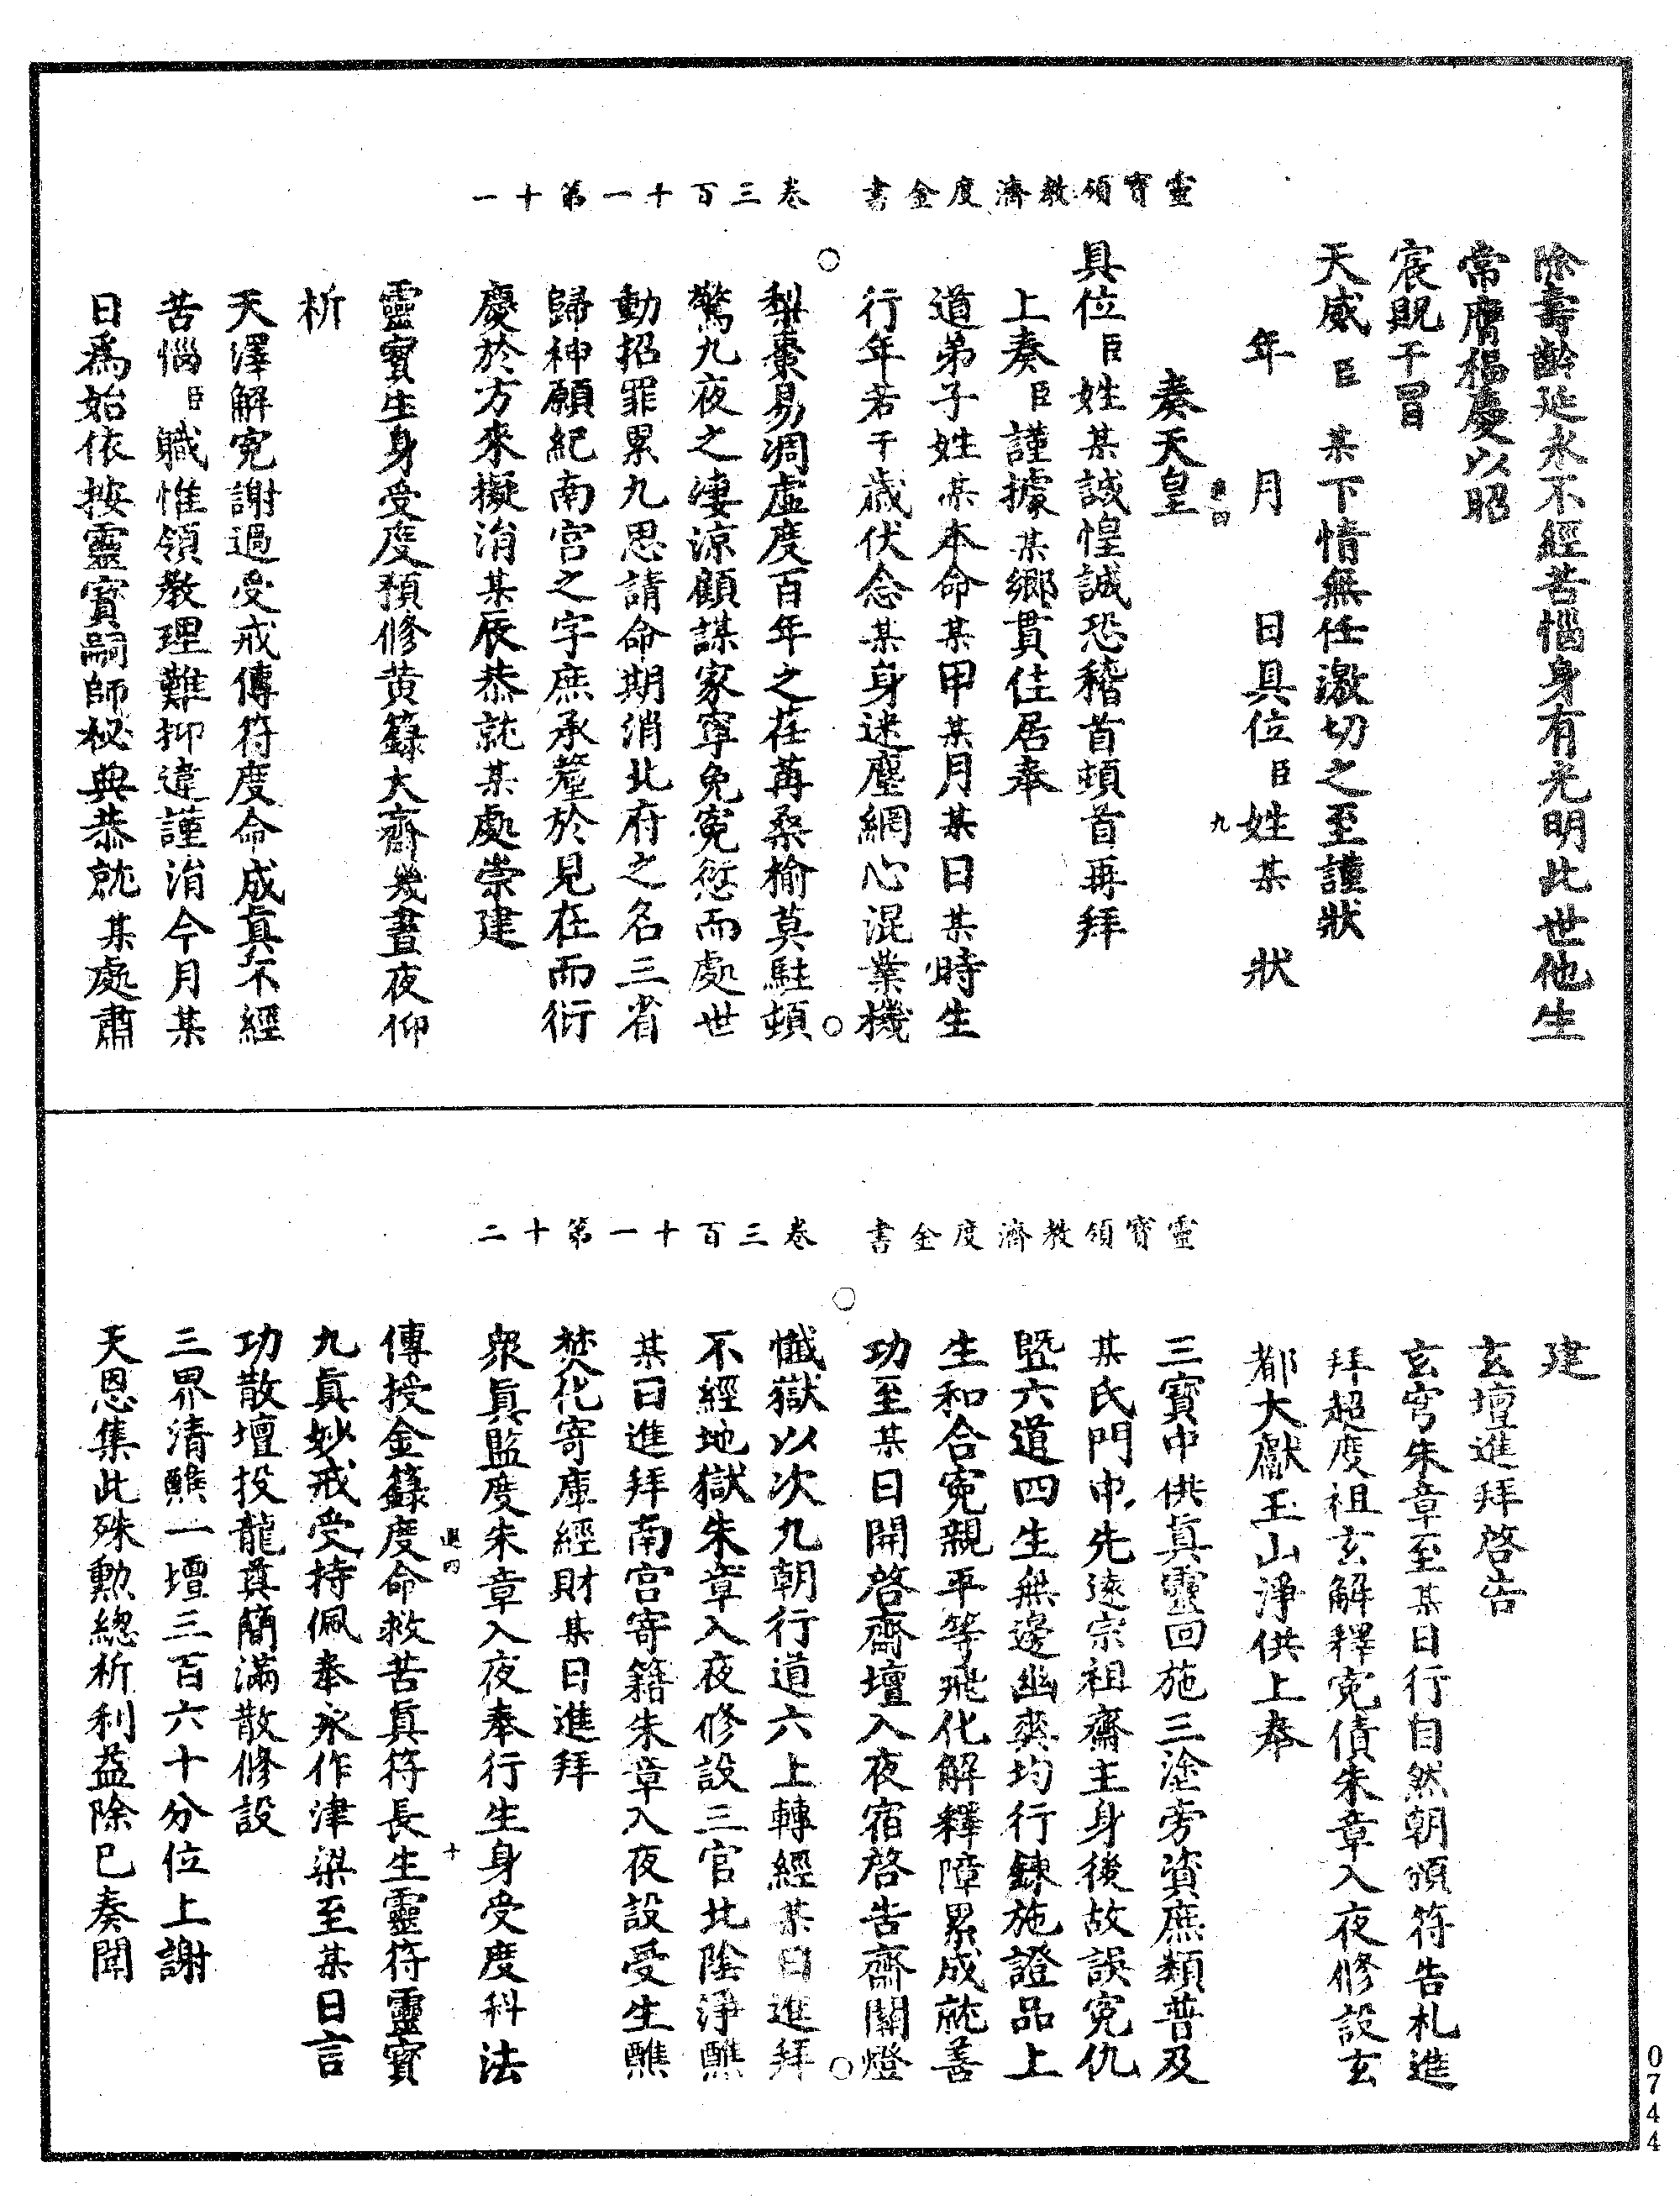 靈寶領教濟度金書　卷三百十一第十一
除壽齡延永不經苦惱身有光明此世他生
常膺福慶以昭
宸貺干冒
天威臣　某下情無任激切之至謹狀
年　月　日具位臣姓某　狀
九
奏天皇
具位臣姓某誠惶誠恐稽首頓首再拜
上奏臣謹據某鄉貫住居奉
道弟子姓某本命某甲某月某日某時生
行年若干歲伏念某身迷塵網心混業機
梨棗易凋虛度百年之荏苒桑榆莫駐頓
驚九夜之淒涼顧謀家寧免冤愆而處世
動招罪累九思請命期消北府之名三省
歸神願紀南宮之字庶承釐於見在而衍
慶於方來擬涓某辰恭就某處崇建
靈寶生身受度預修黃籙大齋幾晝夜仰
析
天澤解冤謝過受戒傳符度命成真不經
苦惱臣職惟領教理難抑違謹涓今月某
日為始依按靈寶嗣師祕典恭就某處肅
靈寶領教濟度金書　卷三百十一第十二
建
玄壇進拜啓告
玄穹朱章至某日行自然朝頒符告札進
拜超度祖玄解釋冤債朱章入夜修設玄
都大獻玉山淨供上奉
三寶中供真靈回施三塗旁資庶類普及
某氏門中先遠宗祖齋主身後故誤冤仇
暨六道四生無邊幽爽均行鍊施證品上
生和合冤親平等飛化解釋障累成就善
功至某日開啓齋壇入夜宿啓告齋關燈
懺獄以次九朝行道六上轉經某日進拜
不經地獄朱章入夜修設三官北陰淨醮
某日進拜南宮寄籍朱章入夜設受生醮
焚化寄庫經財某日進拜
衆真監度朱章入夜奉行生身受度科法
十
傳授金籙度命救苦真符長生靈符靈寶
九真妙戒受持佩奉永作津梁至某日言
功散壇投龍奠簡滿散修設
三界清醮一壇三百六十分位上謝
天恩集此殊勳總析利益除已奏聞
0744